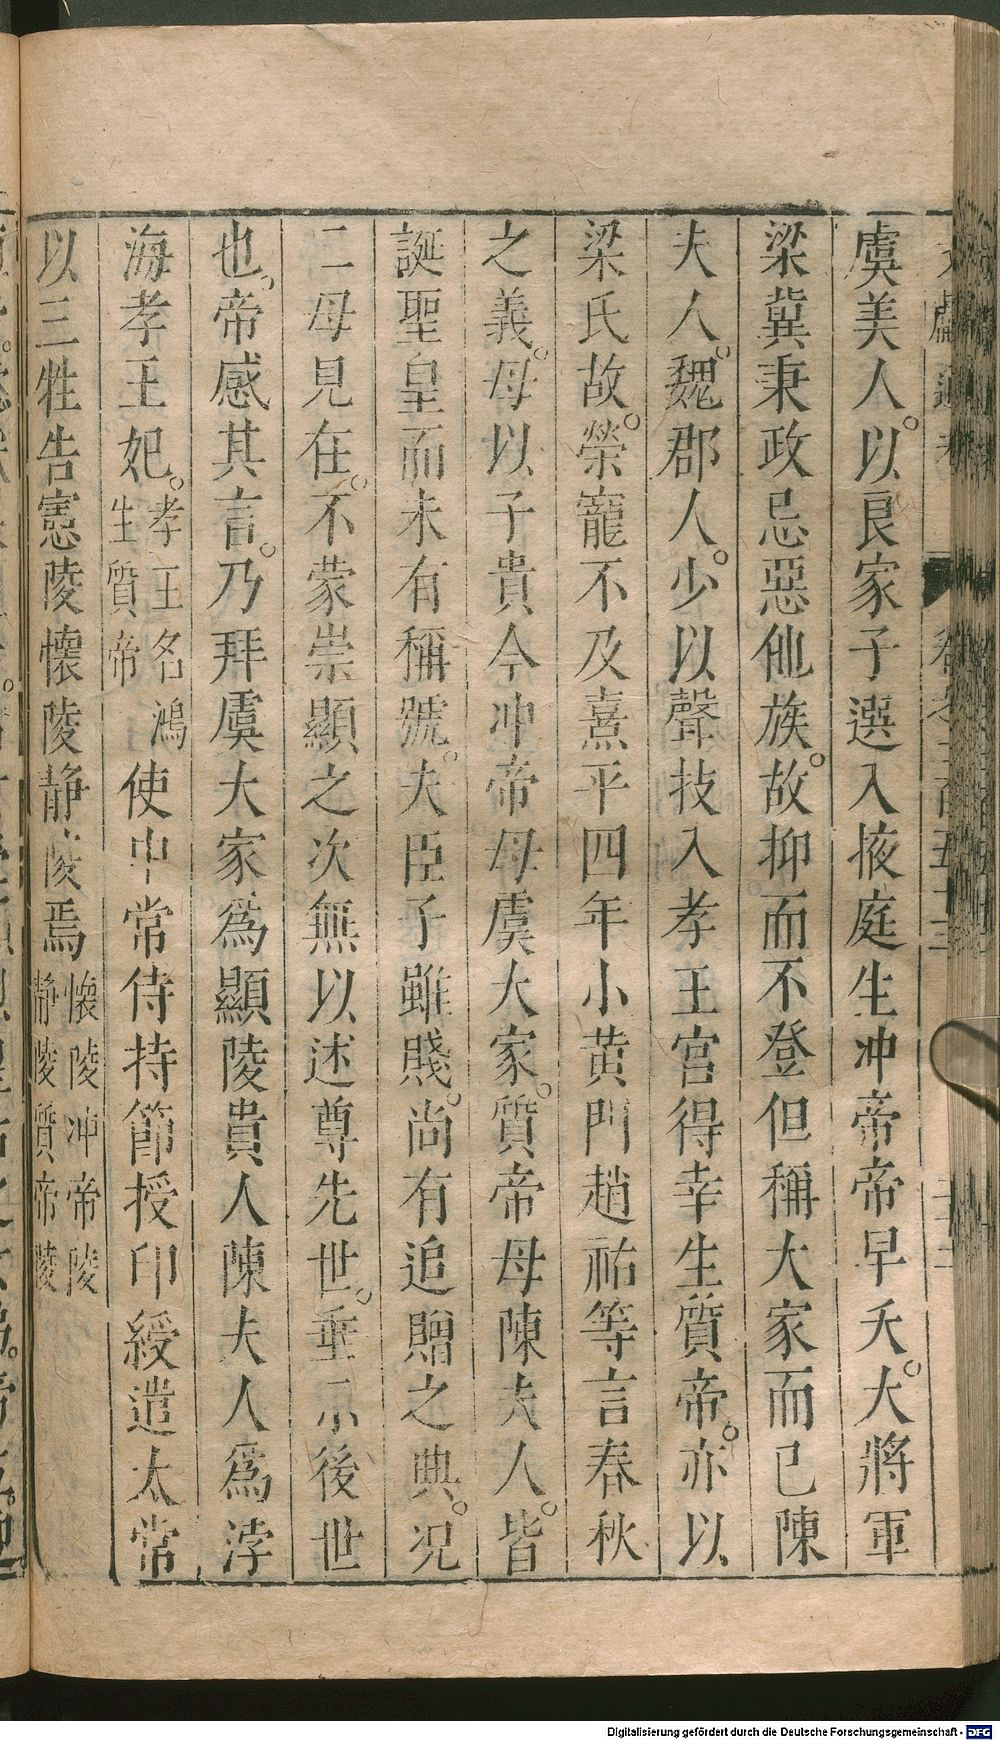 虞美人。以良家子選入掖庭生冲帝帝早夭。大將軍
梁冀秉政忌惡他族。故抑而不登但稱大家而已陳
夫人。魏郡人。少以聲技入孝王宮得幸生質帝。亦以
梁氏故。榮寵不及熹平四年小黄門趙祐等言春秋
之義。母以子貴今冲帝母虞大家。質帝母陳夫人。皆
誕聖皇而未有稱號。夫臣子雖賤。尚有追贈之典。况
二母見在。不蒙崇顯之次無以述尊先世。垂示後世
也。帝感其言。乃拜虞大家爲顯陵貴人陳夫人爲渟
海孝王妃。孝王名鴻生質帝使中常侍持節授印綬遣太常
以三牲告憲陵懷陵静陵焉懷陵冲帝陵静陵質帝陵
Digitalisierung gefördert durch die Deutsche Forschungsgemeinschaft - DFG